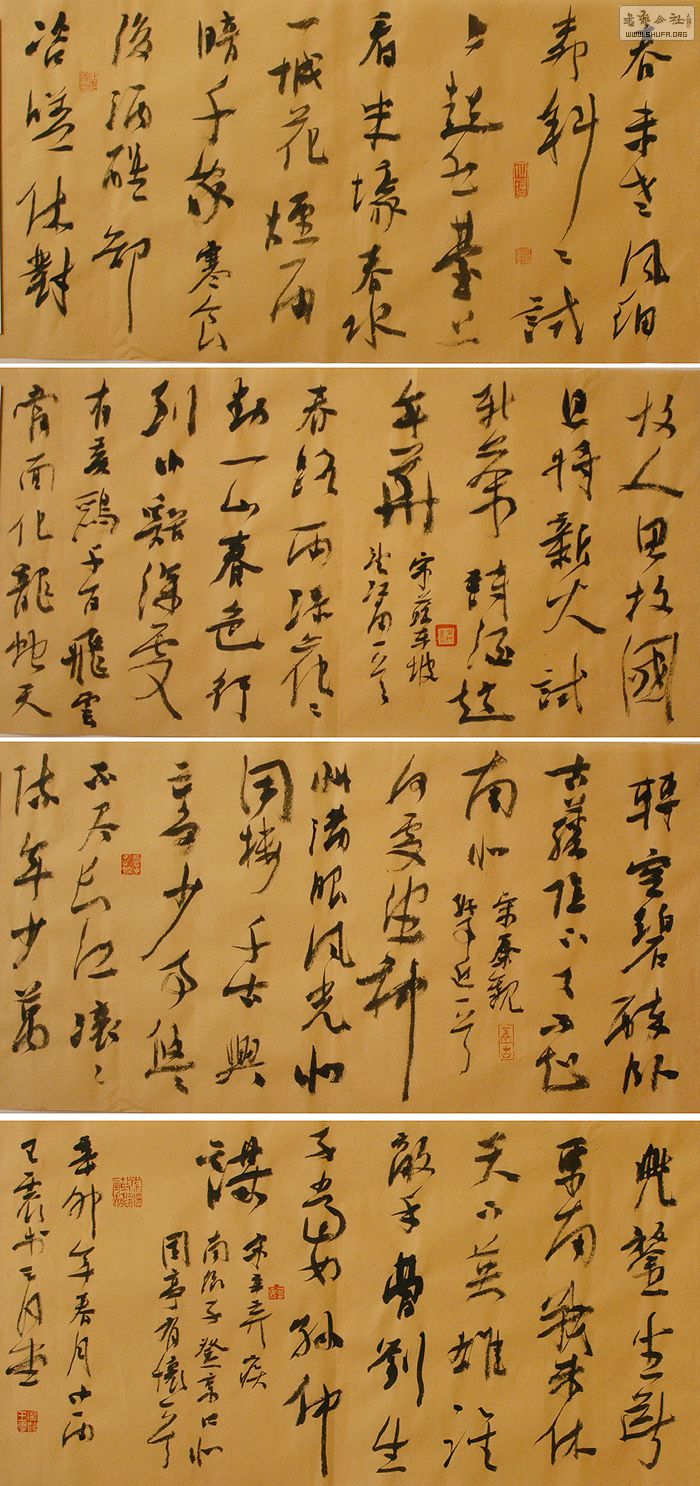 書藝公社
WWW.SHUFA.ORG
春未老風細
柳斜〻試
上超然臺上
看半壕春水
一城花煙雨
暗千家寒食
後酒醒却
咨嗟休對
故人思故國
且將新火試
新茶詩酒趁
年華
宋蘇東坡
望江南一首
春路雨添花〻
動一山春色行
到小谿深處
有黃鸝千百飛雲
當面化龍蛇天
轉空碧醉臥
古藤陰下了不知
南北
宋秦觀
好事近一首
何處望神
州滿眼風光北
固樓千古興
亡多少事悠〻
不尽長江滾〻
流年少萬
兜鍪坐斷
東南戰未休
天下英雄誰
敵手曹劉生
子當如孫仲
謀
宋辛弃疾
南鄉子登京口北
固亭有懷一首
辛卯年春月
王震书